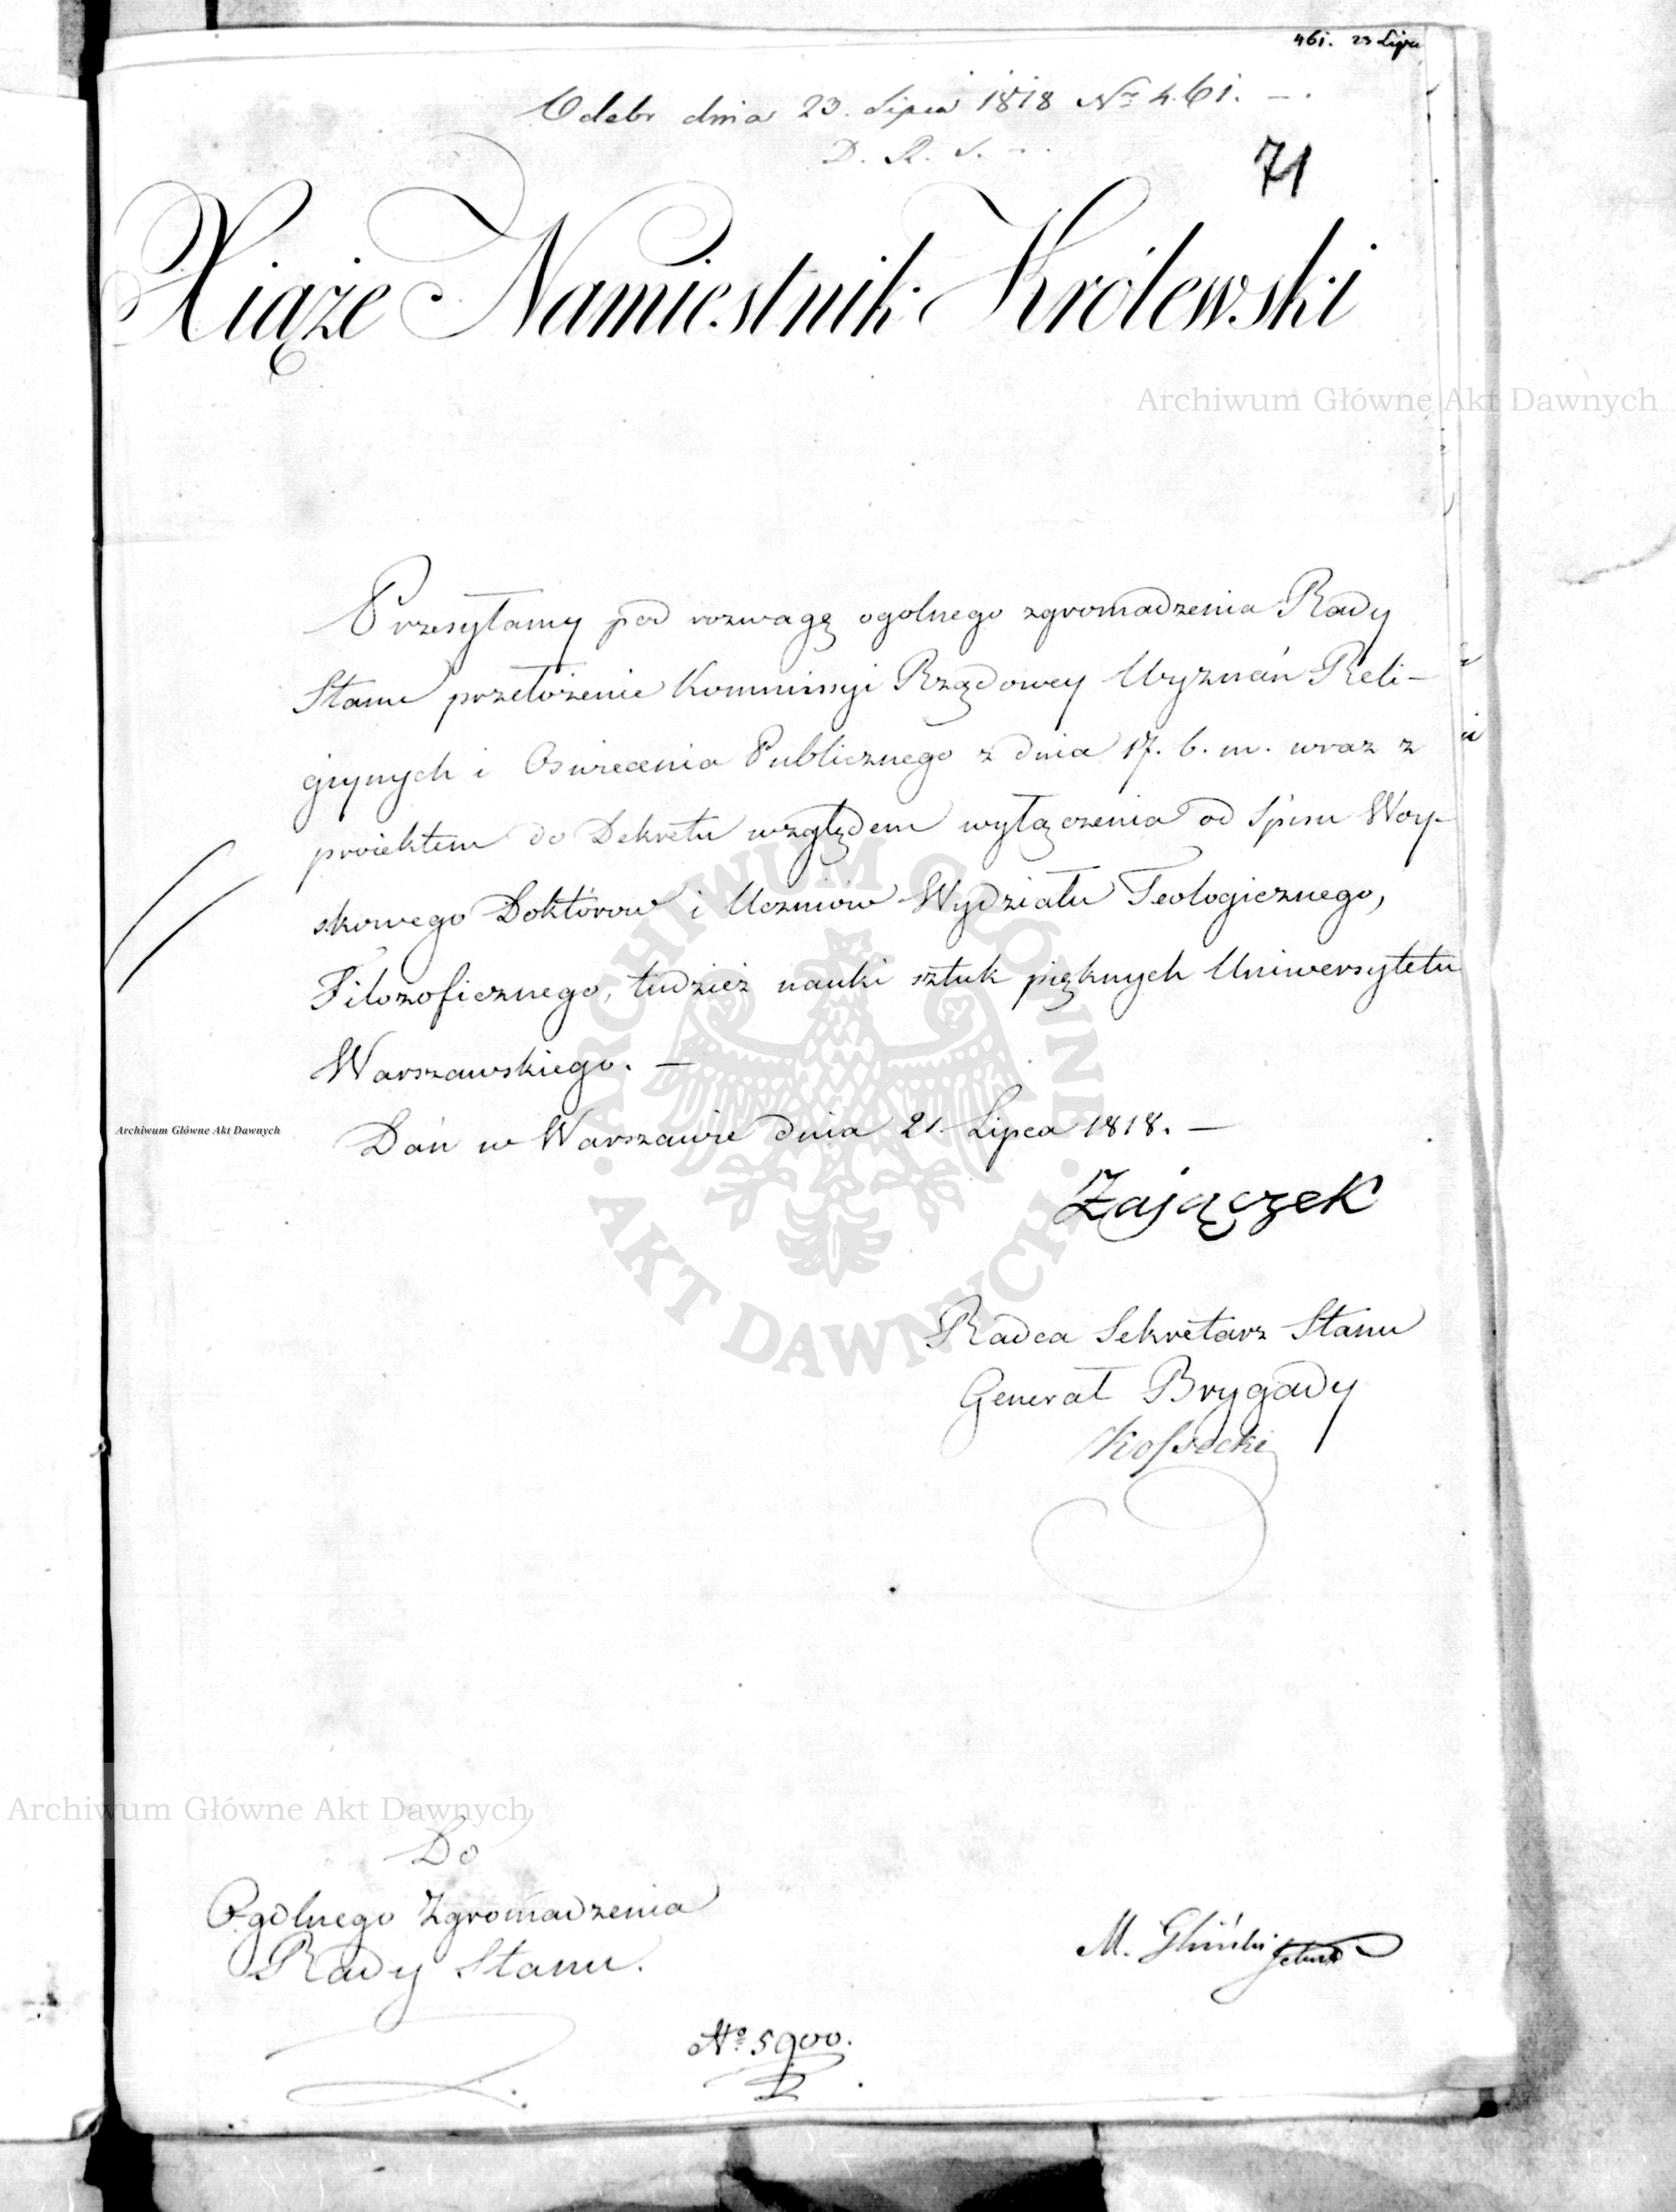 461. 23 Lipca
Odebr dnia 23. Lipca 1818 No 461. —.
D. R. S. —
71
Xiąże Namiestnik Królewski
Archiwum Główne Akt Dawnych
Przesyłamy pod rozwagę ogolnego zgromadzenia Rady
Stanu przełożenie Kommissyi Rządowey Wyznań Reli-
giynych i Oswiecenia Publicznego z dnia 17. b. m. wraz z
proiektem do Dekretu względem wyłączenia od Spisu Woy-
skowego Doktórow i Uczniow Wydziału Teologicznego,
Filozoficznego, tudzież nauki sztuk pięknych Uniwersytetu
Warszawskiego. —
Dań w Warszawie dnia 21. Lipca 1818. —
Archiwum Główne Akt Dawnych
Zajączek
Radca Sekretarz Stanu
Generał Brygady
Kossecki
ARCHIWUM GŁÓWNE
· AKT DAWNYCH ·
Archiwum Główne Akt Dawnych
Do
Ogólnego Zgromadzenia
Rady Stanu.
M. Gliński
No 5900.